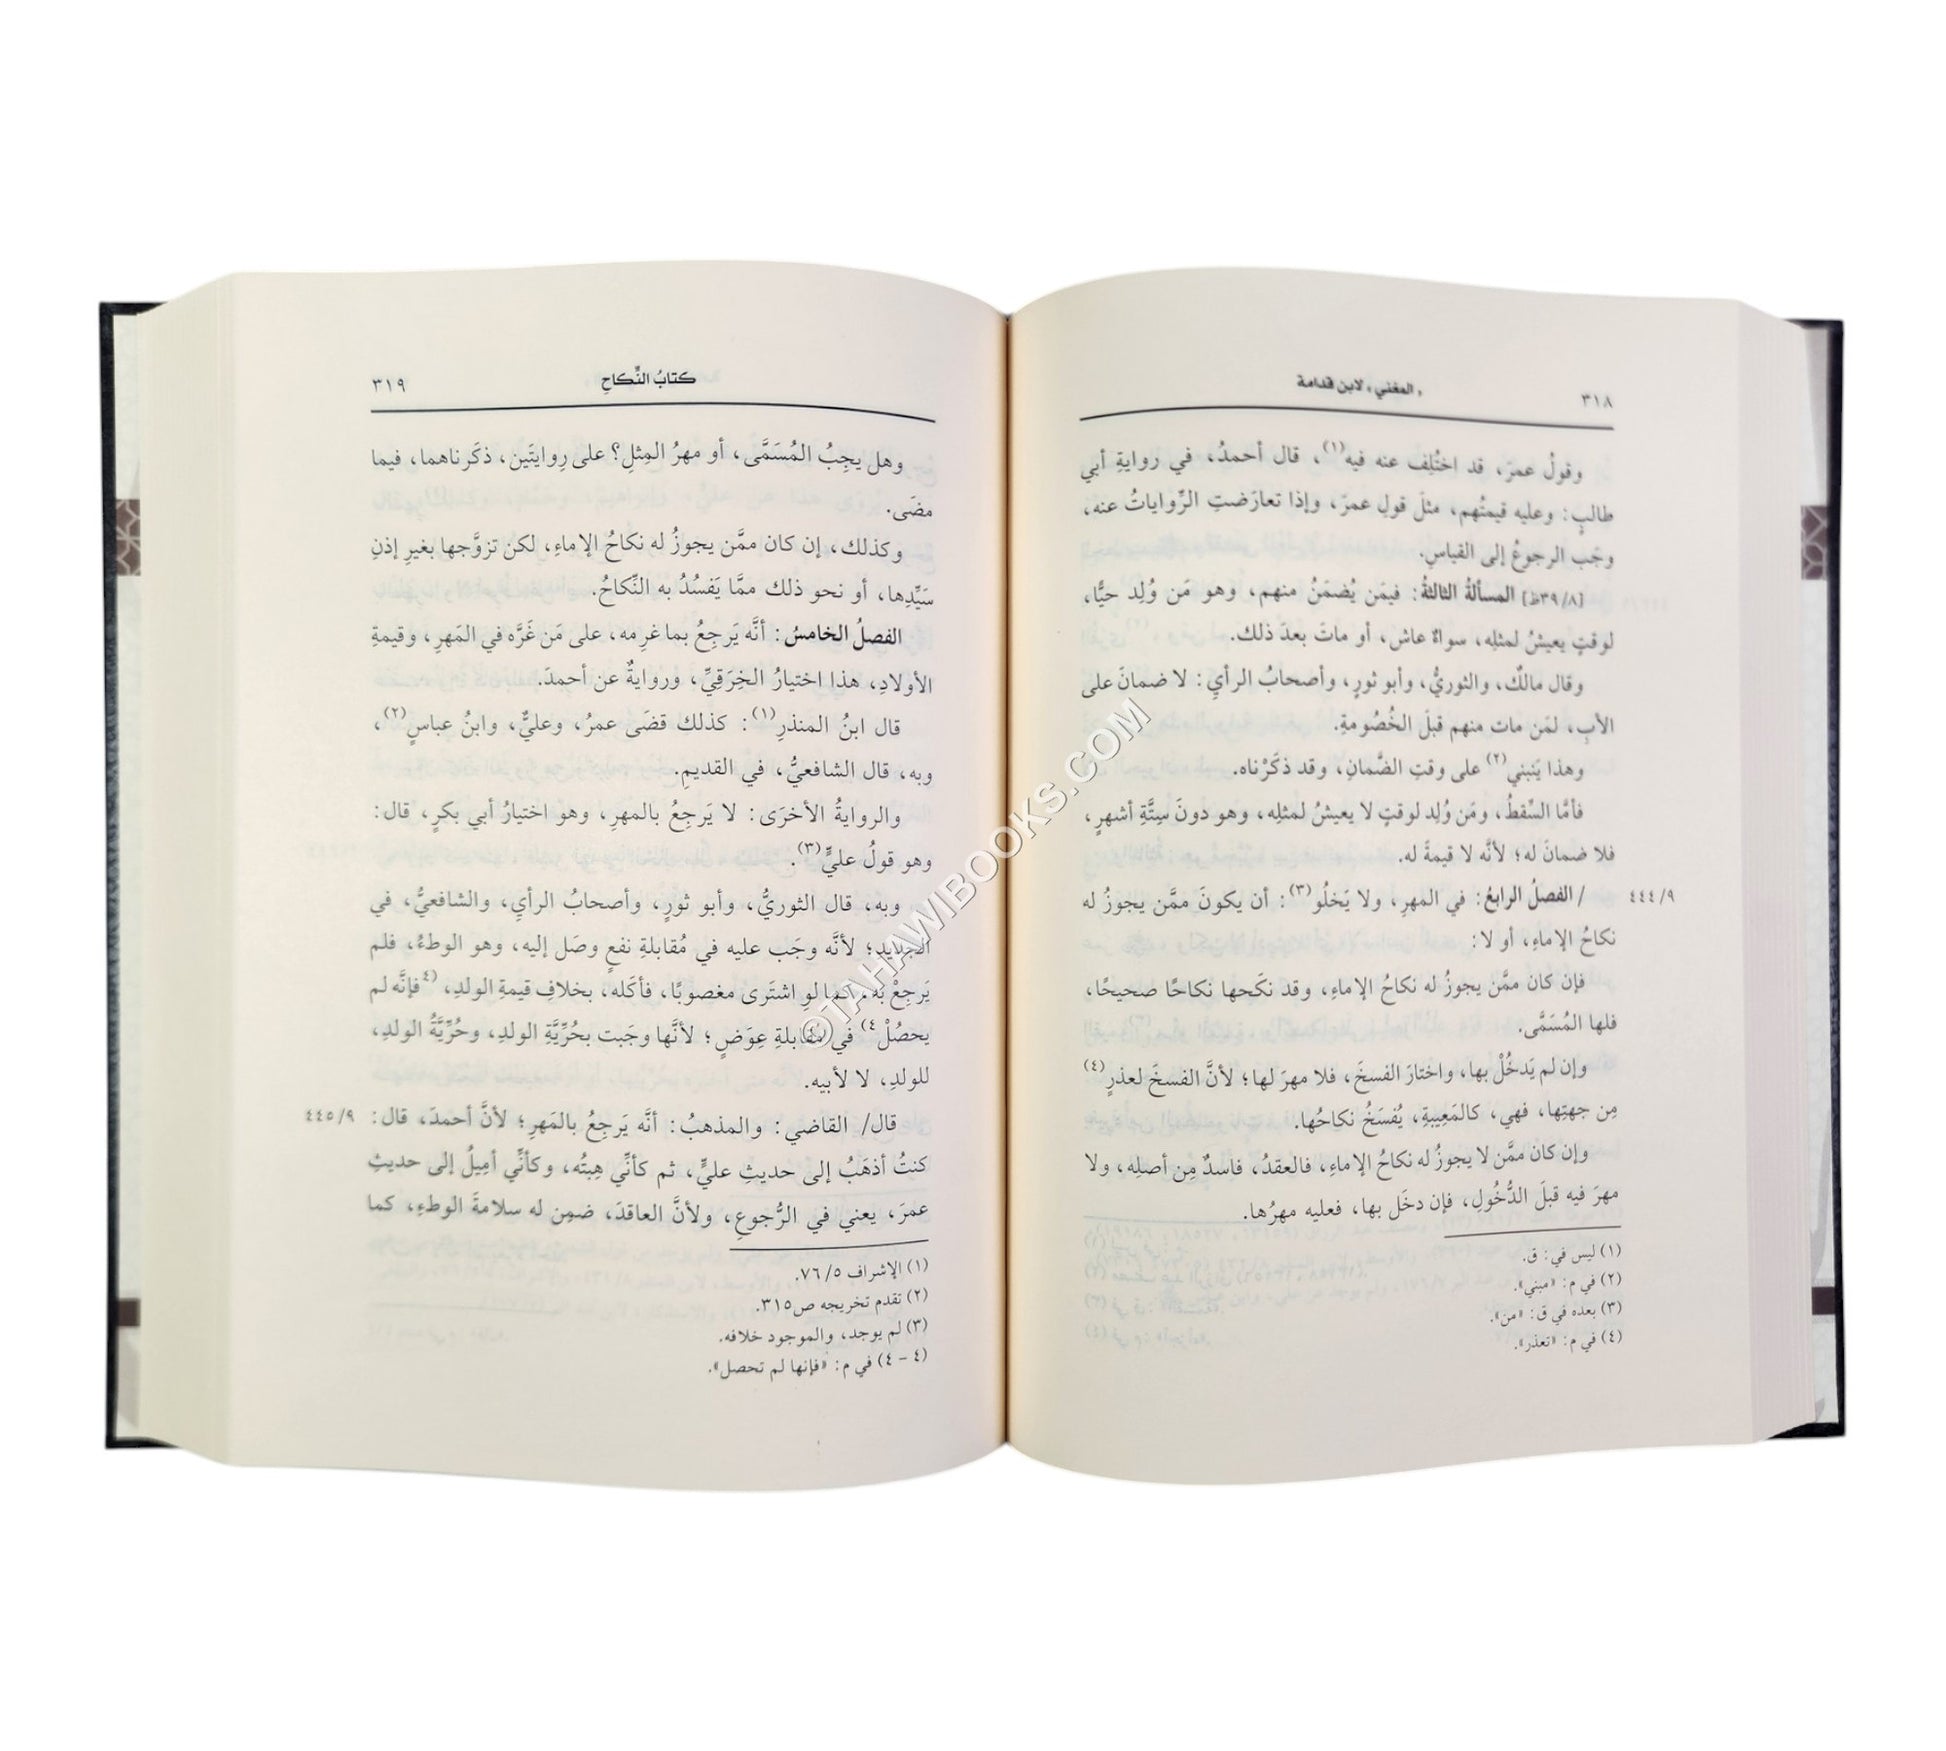 ٣١٨
« المغني » لابن قدامة
وقولُ عمرَ، قد اختُلِف عنه فيه(١)، قال أحمدُ، في روايةِ أبي
طالبٍ: وعليه قيمتُهم، مثلَ قولِ عمرَ، وإذا تعارَضتِ الرِّواياتُ عنه،
وجَب الرجوعُ إلى القياسِ.
[٣٩/٨ظ] المسألةُ الثالثةُ: فيمَن يُضمَنُ منهم، وهو مَن وُلِد حيًّا،
لوقتٍ يعيشُ لمثلِه، سواءٌ عاش، أو ماتَ بعدَ ذلك.
وقال مالكٌ، والثوريُّ، وأبو ثورٍ، وأصحابُ الرأيِ: لا ضمانَ على
الأبِ، لمَن مات منهم قبلَ الخُصُومةِ.
وهذا يَنبني(٢) على وقتِ الضَّمانِ، وقد ذكَرْناه.
فأمَّا السِّقطُ، ومَن وُلِد لوقتٍ لا يعيشُ لمثلِه، وهو دونَ سِتَّةِ أشهرٍ،
فلا ضمانَ له؛ لأنَّه لا قيمةَ له.
٤٤٤/٩ / الفصلُ الرابعُ: في المهرِ، ولا يَخلُو(٣): أن يكونَ ممَّن يجوزُ له
نكاحُ الإماءِ، أو لا:
فإن كان ممَّن يجوزُ له نكاحُ الإماءِ، وقد نكَحها نكاحًا صحيحًا،
فلها المُسَمَّى.
وإن لم يَدخُلْ بها، واختارَ الفسخَ، فلا مهرَ لها؛ لأنَّ الفسخَ لعذرٍ(٤)
مِن جهتِها، فهي، كالمَعِيبةِ، يُفسَخُ نكاحُها.
وإن كان ممَّن لا يجوزُ له نكاحُ الإماءِ، فالعقدُ، فاسدٌ مِن أصلِه، ولا
مهرَ فيه قبلَ الدُّخُولِ، فإن دخَل بها، فعليه مهرُها.
(١) ليس في: ق.
(٢) في م: «مبني».
(٣) بعده في ق: «من».
(٤) في م: «تعذر».
كتابُ النِّكاحِ
٣١٩
وهل يجِبُ المُسَمَّى، أو مهرُ المِثلِ؟ على رِوايتَين، ذكَرناهما، فيما
مضَى.
وكذلك، إن كان ممَّن يجوزُ له نكاحُ الإماءِ، لكن تزوَّجها بغيرِ إذنِ
سَيِّدِها، أو نحو ذلك ممَّا يَفسُدُ به النِّكاحُ.
الفصلُ الخامسُ: أنَّه يَرجِعُ بما غرِمه، على مَن غَرَّه في المَهرِ، وقيمةِ
الأولادِ، هذا اختيارُ الخِرَقِيِّ، وروايةٌ عن أحمدَ.
قال ابنُ المنذرِ(١): كذلك قضَى عمرُ، وعليٌّ، وابنُ عباسٍ(٢)،
وبه، قال الشافعيُّ، في القديمِ.
والروايةُ الأخرَى: لا يَرجِعُ بالمهرِ، وهو اختيارُ أبي بكرٍ، قال:
وهو قولُ عليٍّ(٣).
وبه، قال الثوريُّ، وأبو ثورٍ، وأصحابُ الرأيِ، والشافعيُّ، في
الجديدِ؛ لأنَّه وجَب عليه في مُقابلةِ نفعٍ وصَل إليه، وهو الوطءُ، فلم
يَرجِعْ به، كما لوِ اشتَرى مغصوبًا، فأكَله، بخلافِ قيمةِ الولدِ، (٤فإنَّه لم
يحصُلْ٤) في مُقابلةِ عِوَضٍ؛ لأنَّها وجَبت بحُرِّيَّةِ الولدِ، وحُرِّيَّةُ الولدِ،
للولدِ، لا لأبيه.
قال/ القاضي: والمذهبُ: أنَّه يَرجِعُ بالمَهرِ؛ لأنَّ أحمدَ، قال: ٤٤٥/٩
كنتُ أذهَبُ إلى حديثِ عليٍّ، ثم كأنِّي هِبتُه، وكأنِّي أمِيلُ إلى حديثِ
عمرَ، يعني في الرُّجوعِ، ولأنَّ العاقدَ، ضمِن له سلامةَ الوطءِ، كما
(١) الإشراف ٧٦/٥.
(٢) تقدم تخريجه ص٣١٥.
(٣) لم يوجد، والموجود خلافه.
(٤ - ٤) في م: «فإنها لم تحصل».
©TAHAWIBOOKS.COM